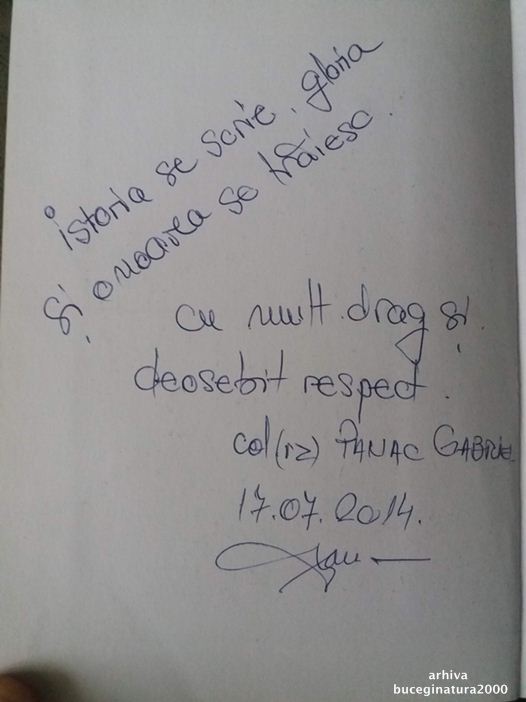 istoria se scrie, gloria
și onoarea se trăiesc.
cu mult drag și
deosebit respect.
col (rz) PANAC GABRIEL
17.07.2014.
arhiva
buceginatura2000